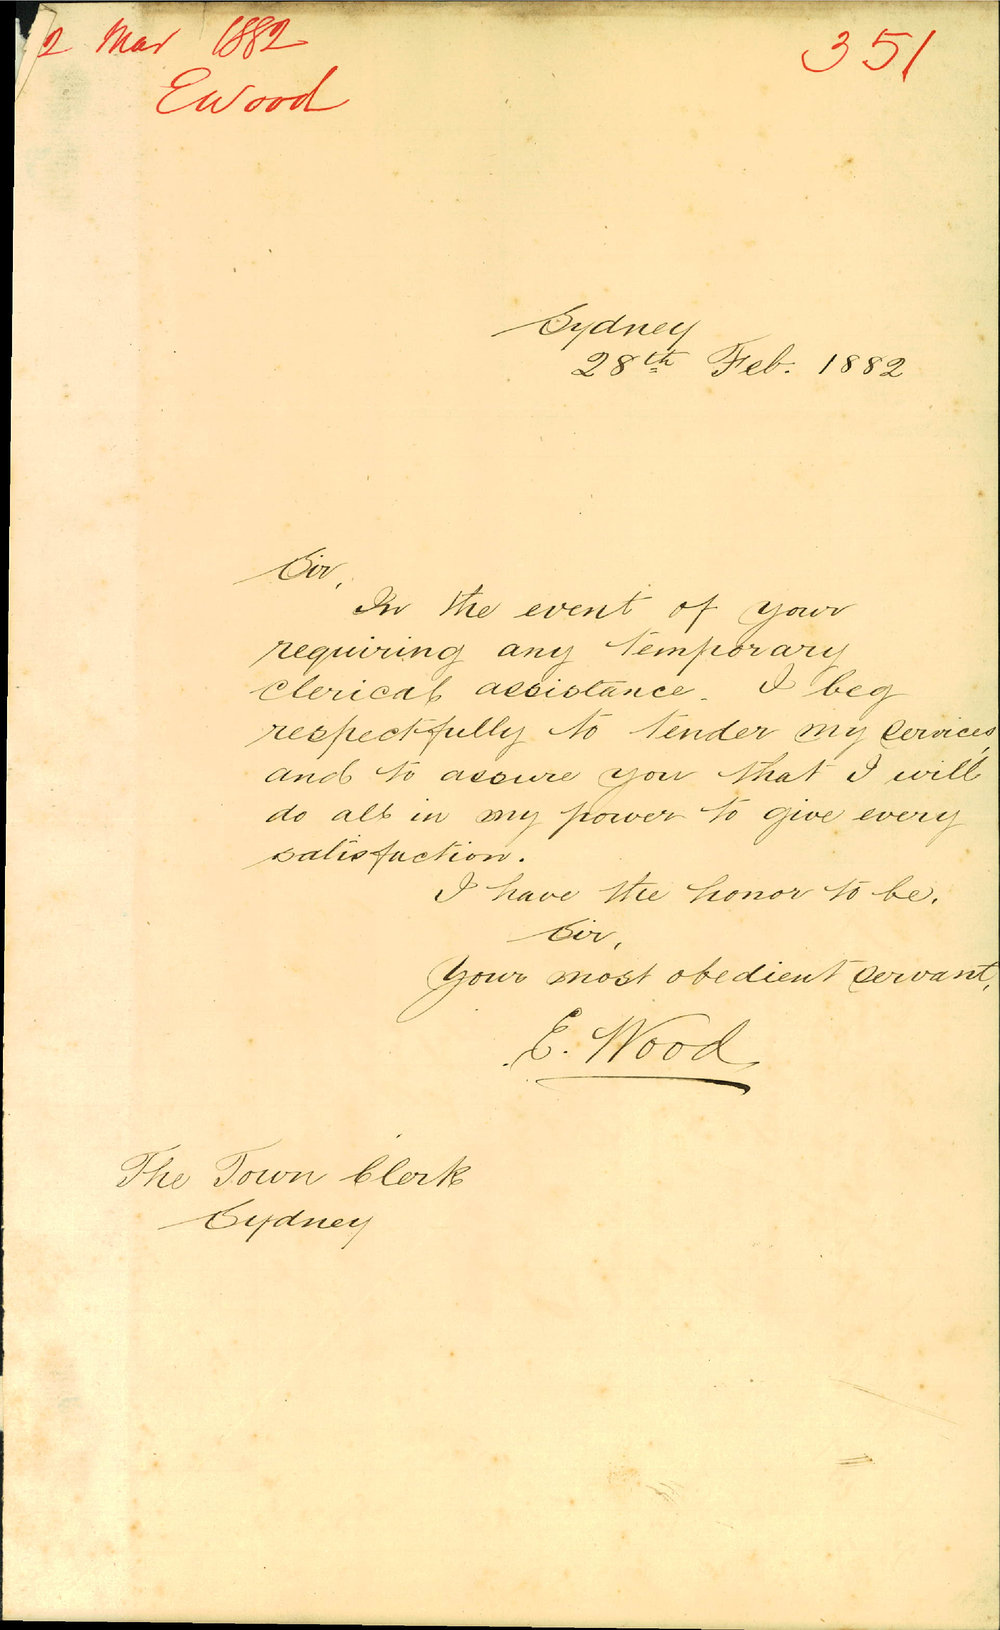 2 Mar 1882
E Wood
351
Sydney
28th Feb. 1882
Sir,
In the event of your
requiring any temporary
clerical assistance. I beg
respectfully to tender my services,
and to assure you that I will
do all in my power to give every
satisfaction.
I have the honor to be.
Sir,
Your most obedient servant,
E. Wood
The Town Clerk
Sydney